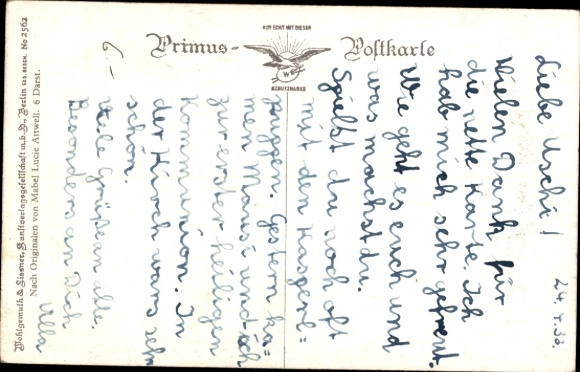 NUR ECHT MIT DIESER
Primus-Postkarte
W
SCHUTZMARKE
Wohlgemuth & Lissner, Kunstverlagsgesellschaft m.b.H. Berlin No 2562
Nach Originalen von Mabel Lucie Attwell. 6 Darst.
6 –
24. 4. 33.
Liebe Uschi!
Vielen Dank für
die nette Karte. Ich
hab mich sehr gefreut.
Wie geht es euch und
was machst du.
Spielst du noch oft
mit den Kasperl=
puppen. Gestern ka=
men Mausi und ich
zur erster heiligen
Kommunion. In
der Kirch wars sehr
schön.
Viele Grüße an alle.
Besonders an Dich
Ulla